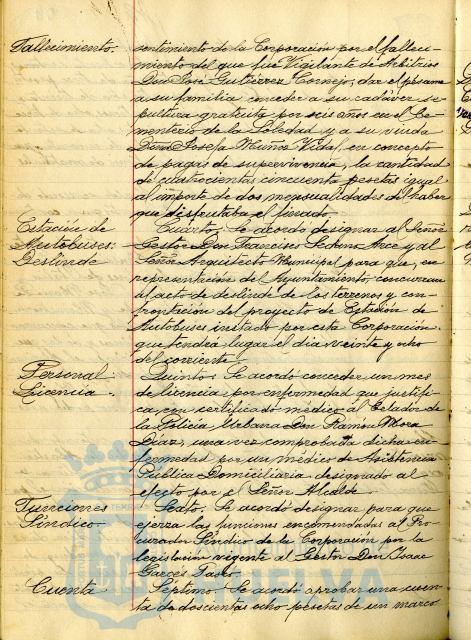 Fallecimiento.
sentimiento de la Corporación por el falleci-
miento del que fué Vigilante de Arbitrios
Don José Gutiérrez Cornejo, dar el pésame
a su familia, conceder a su cadáver se-
pultura gratuita por seis años en el Ce-
menterio de la Soledad y a su viuda
Doña Josefa Muñoz Vidal, en concepto
de pagas de supervivencia, la cantidad
de cuatrocientas cincuenta pesetas igual
al importe de dos mensualidades de haber
que disfrutaba el finado.
Estación de
Autobuses:
Deslinde
Cuarto. Se acordó designar al Señor
Gestor Don Francisco Sedano Arce y al
Señor Arquitecto Municipal para que, en
representación del Ayuntamiento, concurran
al acto de deslinde de los terrenos y con-
frontación del proyecto de Estación de
Autobuses instado por esta Corporación,
que tendrá lugar el día veinte y ocho
del corriente.
Personal
Licencia.
Quinto. Se acordó conceder un mes
de licencia por enfermedad que justifi-
ca con certificado médico al Celador de
la Policía Urbana Don Ramón Mora
Díaz, una vez comprobada dicha en-
fermedad por un médico de Asistencia
Pública Domiciliaria designado al
efecto por el Señor Alcalde.
Funciones
Síndico.
Sexto. Se acordó designar para que
ejerza las funciones encomendadas al Pro-
curador Síndico de la Corporación por la
legislación vigente al Gestor Don Isaac
Garcés
Cuenta
Séptimo. Se acordó aprobar una cuen-
ta de doscientas ocho pesetas de un marco